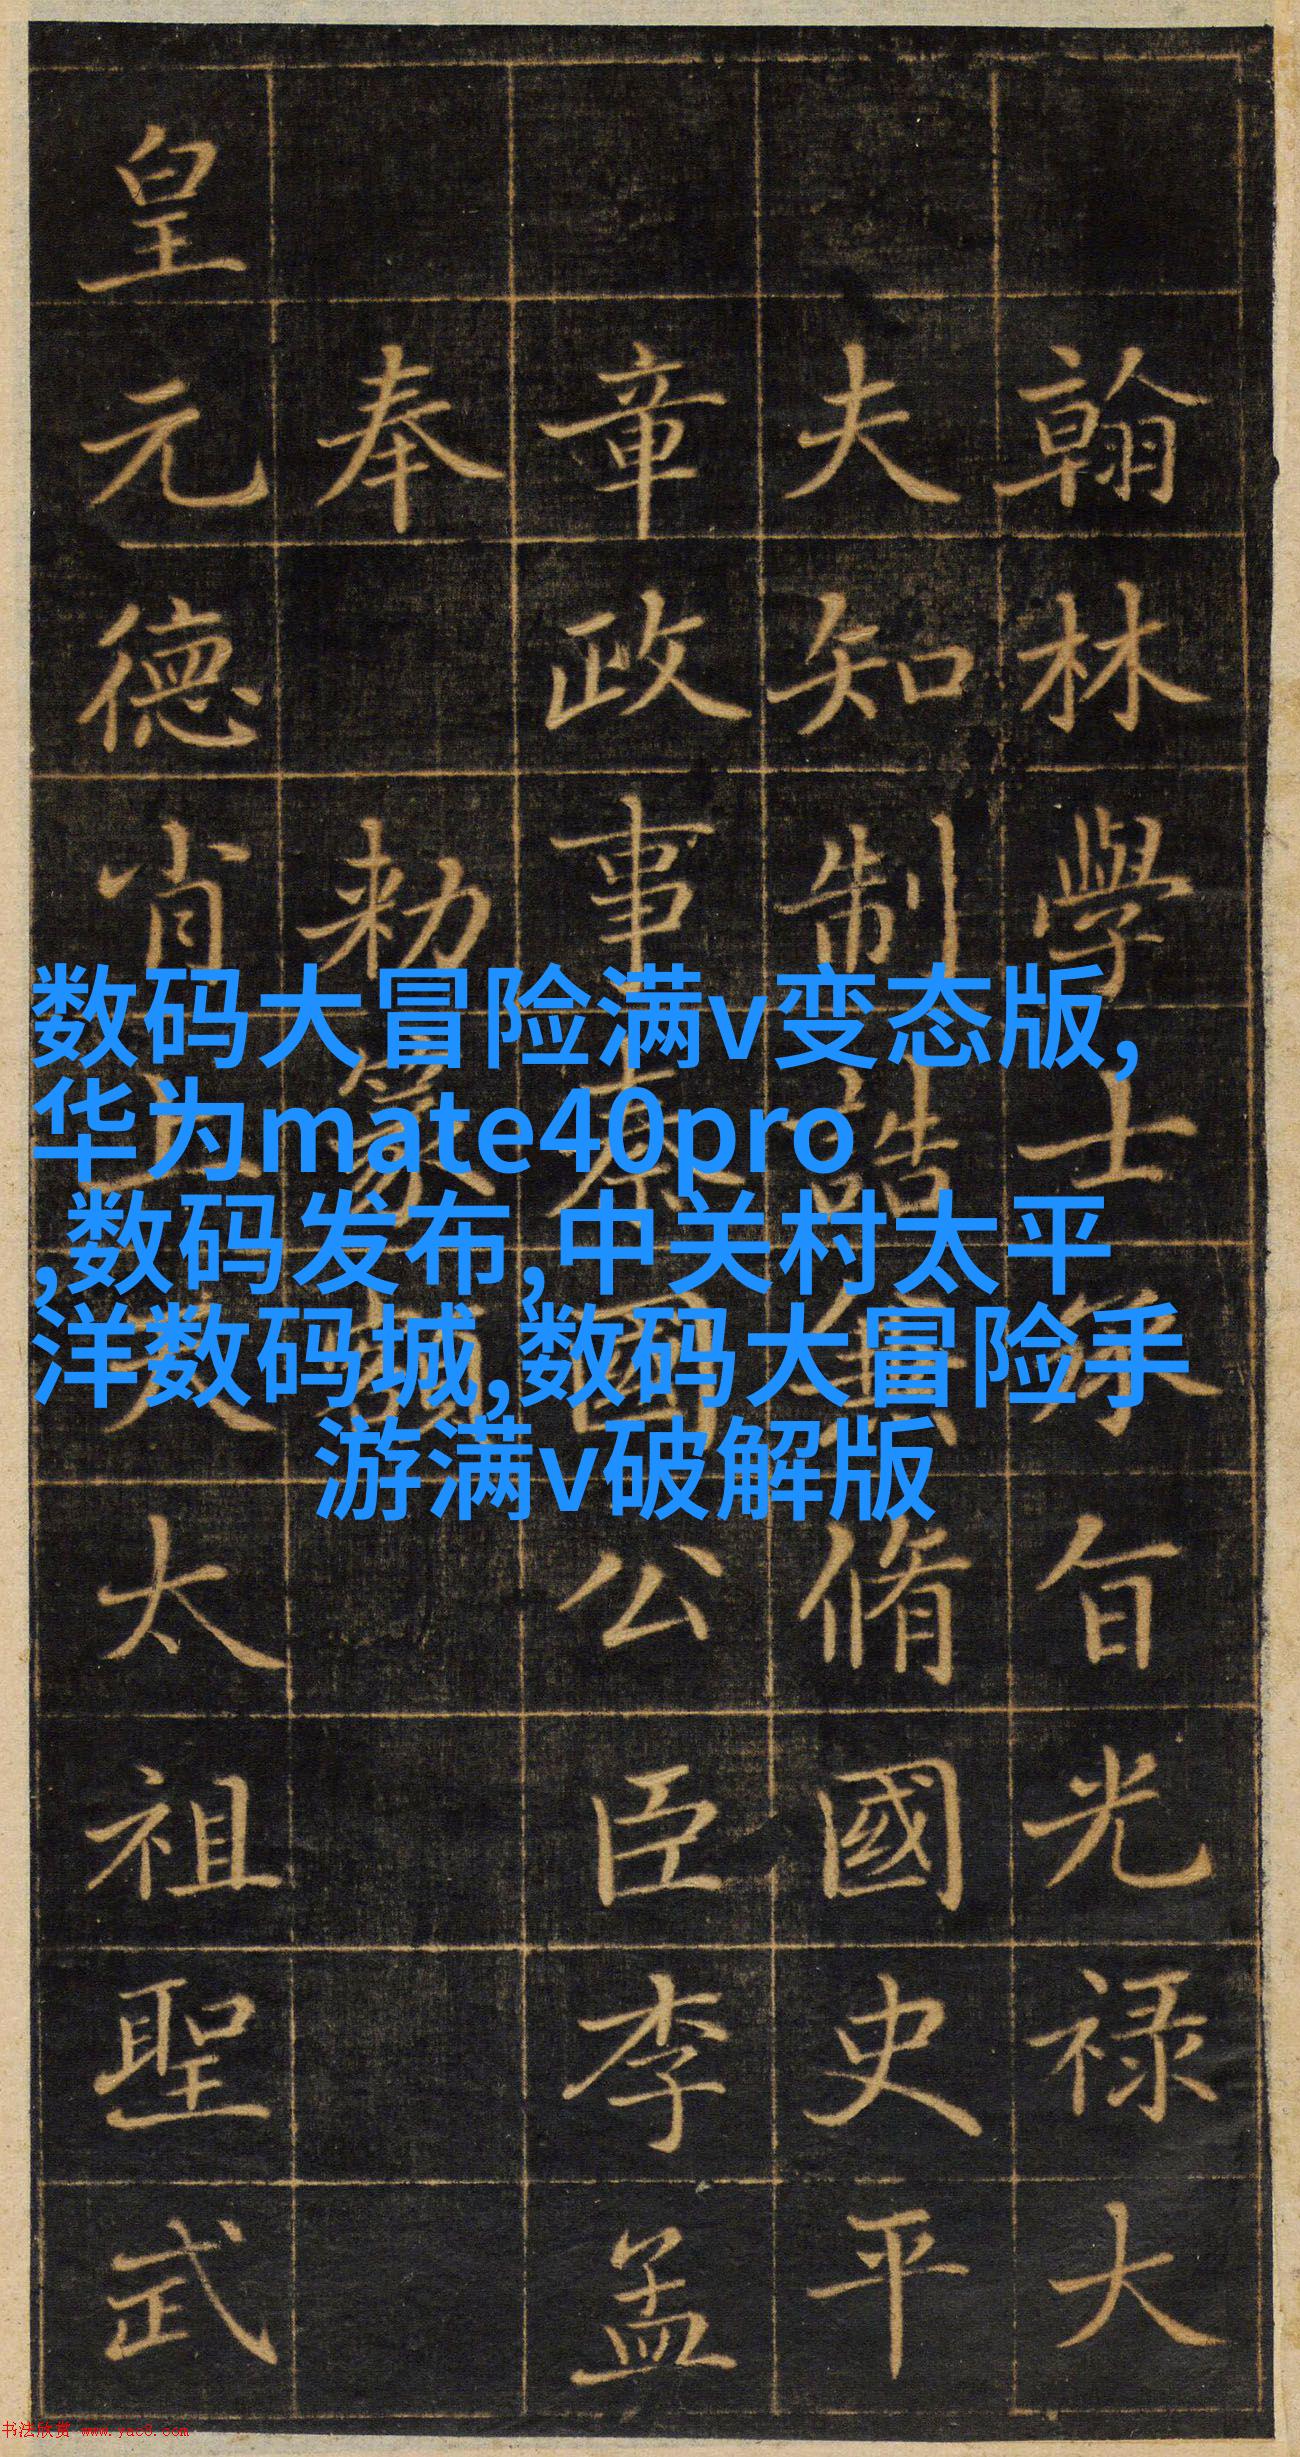 数码大冒险满v变态版,
华为mate40pro
,数码发布,中关村太平
洋数码城,数码大冒险手
游满v破解版
翰林學士旨光禄大
夫知制誥脩國史平
章政事秦國公臣李孟
奉勑篆
皇元德肖太祖聖武
书法欣赏 www.yac8.com